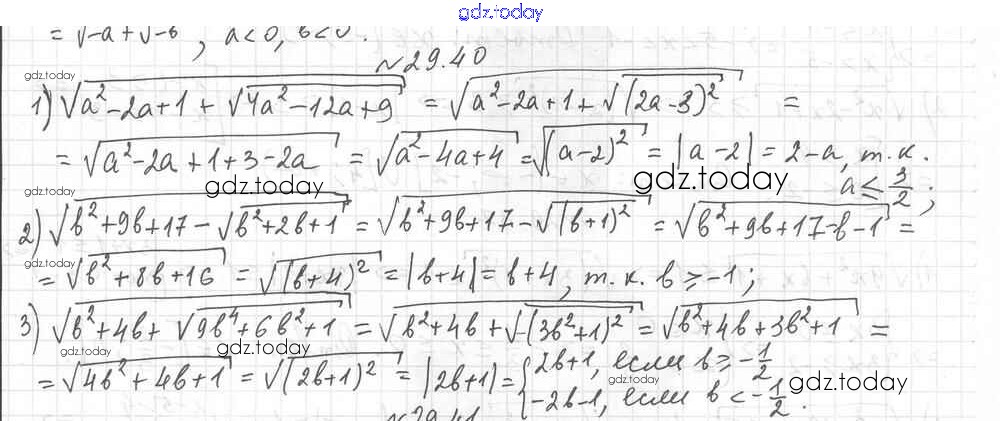 gdz.today
= √-a + √-b , a<0, b<0.
№29.40
gdz.today
1) √(a²-2a+1+√(4a²-12a+9)) = √(a²-2a+1+√((2a-3)²)) =
= √(a²-2a+1+3-2a) = √(a²-4a+4) = √((a-2)²) = |a-2| = 2-a, т.к.
gdz.today gdz.today
a ≤ 3/2;
2) √(b²+9b+17-√(b²+2b+1)) = √(b²+9b+17-√((b+1)²)) = √(b²+9b+17-b-1) =
gdz.today
= √(b²+8b+16) = √((b+4)²) = |b+4| = b+4, т.к. b ≥ -1;
3) √(b²+4b+√(9b⁴+6b²+1)) = √(b²+4b+√((3b²+1)²)) = √(b²+4b+3b²+1) =
gdz.today gdz.today
= √(4b²+4b+1) = √((2b+1)²) = |2b+1| = { 2b+1, если b ≥ -1/2
-2b-1, если b < -1/2.
gdz.today gdz.today
№29.41